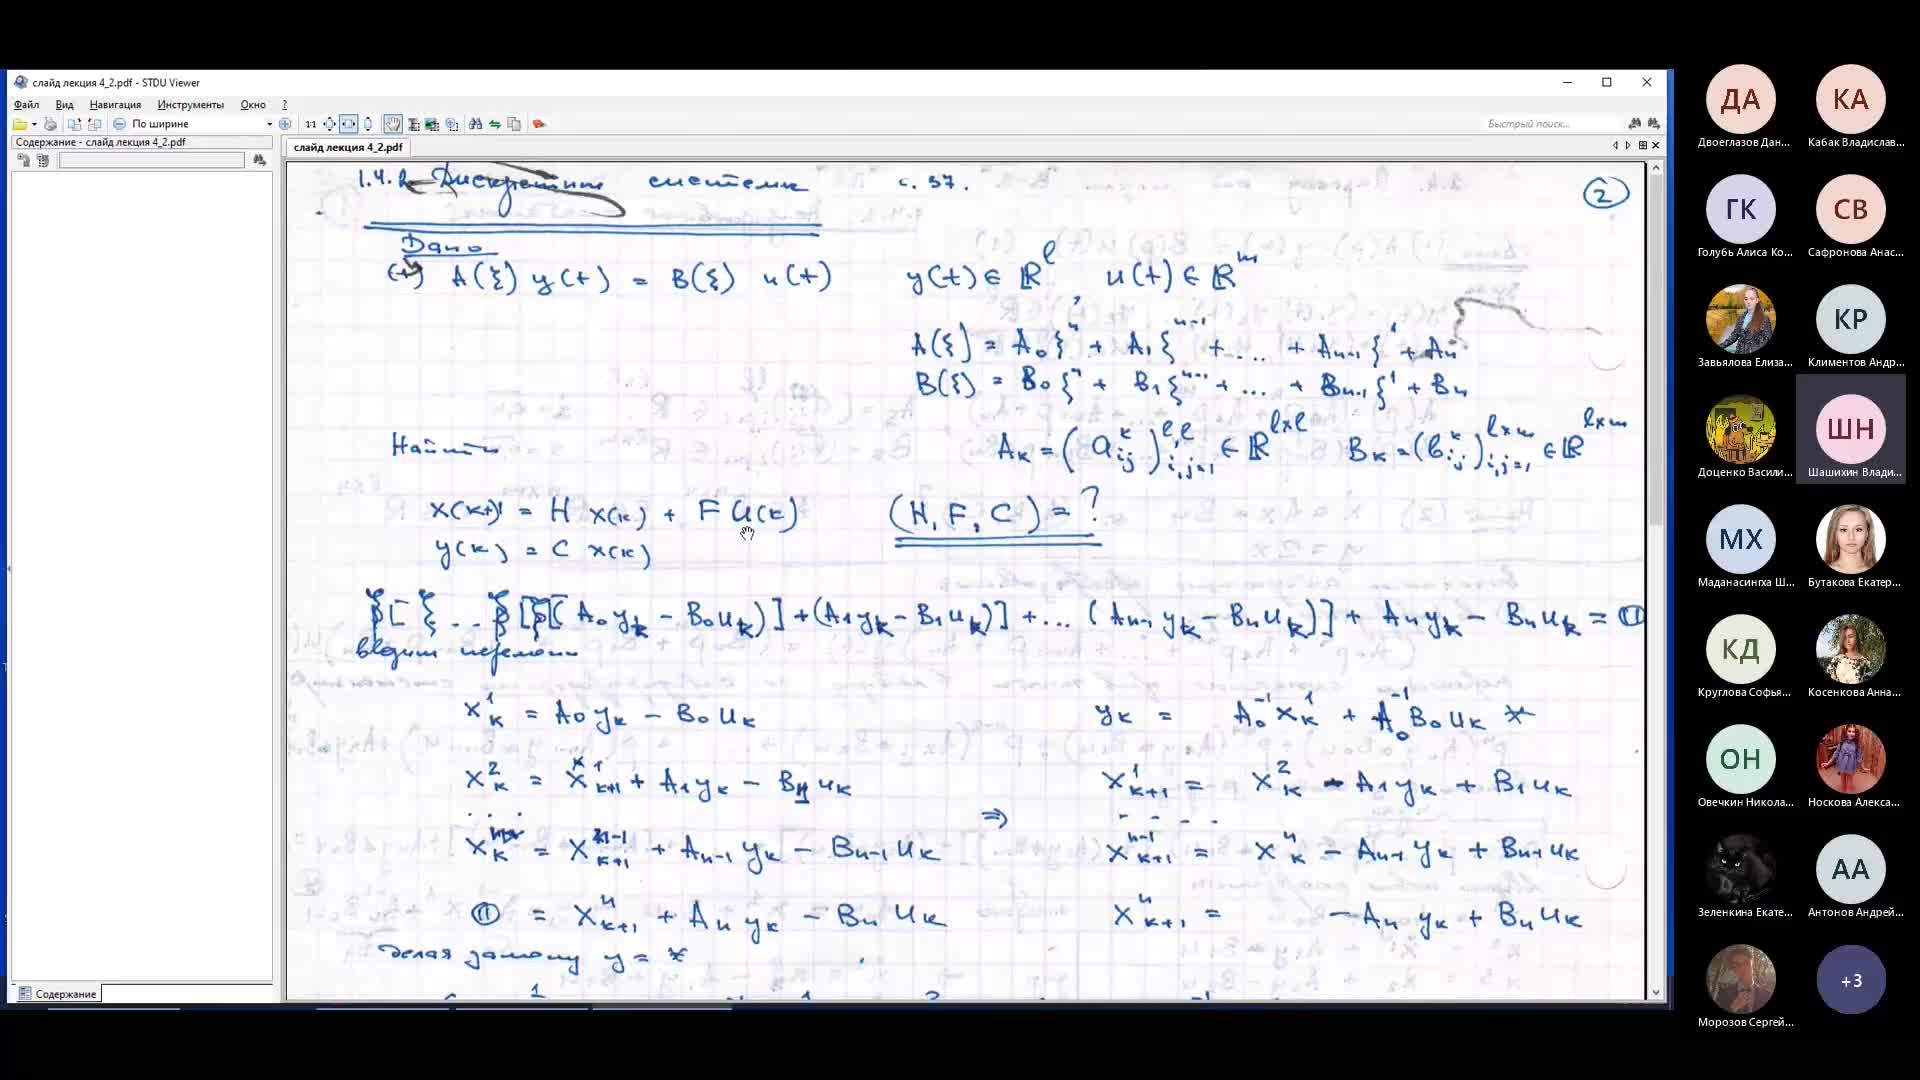 слайд лекция 4_2.pdf - STDU Viewer
Файл Вид Навигация Инструменты Окно ?
По ширине
1:1
Быстрый поиск...
Содержание - слайд лекция 4_2.pdf
слайд лекция 4_2.pdf
1.4.2 Дискретные системы с. 37.
2
Дано
A(ξ) y(t) = B(ξ) u(t) y(t) ∈ ℝ^l, u(t) ∈ ℝ^m
A(ξ) = A₀ξⁿ + A₁ξⁿ⁻¹ + ... + Aₙ₋₁ξ¹ + Aₙ
B(ξ) = B₀ξⁿ + B₁ξⁿ⁻¹ + ... + Bₙ₋₁ξ¹ + Bₙ
Найти A_к = (a^к_ij)^{l,l}_{i,j=1} ∈ ℝ^{l×l} B_к = (b^к_ij)^{l×m}_{i,j=1} ∈ ℝ^{l×m}
x(к+1) = H x(к) + F u(к) (H, F, C) = ?
y(к) = C x(к)
ξ[ ξ ... ξ[ξ[( A₀y_k − B₀u_k)] + (A₁y_k − B₁u_k)] + ... (Aₙ₋₁y_k − Bₙu_k)] + Aₙy_k − Bₙu_k = 0
вводим
x¹_к = A₀y_к − B₀u_к y_к = A₀⁻¹x¹_к + A₀⁻¹B₀u_к *
x²_к = x¹_{к+1} + A₁y_к − B₁u_к x¹_{к+1} = x²_к − A₁y_к + B₁u_к
. . . ⇒ - - - -
xⁿ_к = xⁿ⁻¹_{к+1} + Aₙ₋₁y_к − Bₙ₋₁u_к xⁿ⁻¹_{к+1} = xⁿ_к − Aₙ₋₁y_к + Bₙ₋₁u_к
0 = xⁿ_{к+1} + Aₙy_к − Bₙu_к xⁿ_{к+1} = − Aₙy_к + Bₙu_к
делая замену y = *
Содержание
ДА
Двоеглазов Дан...
КА
Кабак Владислав...
ГК
Голубь Алиса Ко...
СВ
Сафронова Анас...
Завьялова Елиза...
КР
Климентов Андр...
Доценко Васили...
ШН
Шашихин Влади...
МХ
Маданасингха Ш...
Бутакова Екатер...
КД
Круглова Софья...
Косенкова Анна...
ОН
Овечкин Никола...
Носкова Алекса...
Зеленкина Екате...
АА
Антонов Андрей...
Морозов Сергей...
+3